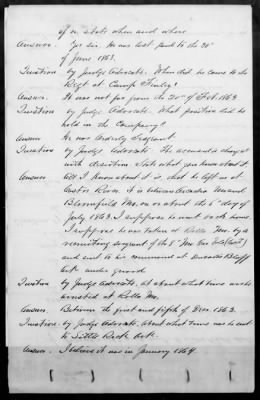 if so state when and where
Answer. Yes sir. He was last paid to the 30"
of June 1863.
Question by Judge Advocate. When did he come to the
Regt at Camp Finley?
Answer. It was not far from the 20" of Feb. 1863
Question by Judge Advocate. What position did he
hold in the Company?
Answer He was Orderly Sergeant.
Question by Judge Advocate. The accused is charged
with desertion State what you know about it.
Answer All I know about it is, that he left us at
Castor River. It is between Arcadia Mo and
Bloomfield Mo. on or about the 6" day of
July 1863. I suppose he went north home.
I suppose he was taken at Rolla Mo. by a
recruiting sergeant of the 8" Mo
and sent to his command at
Ark under guard
Question by Judge Advocate. At about what time was he
arrested at Rolla Mo.
Answer Between the first and fifth of Dec 1863.
Question. by Judge Advocate. About what time was he sent
to Little Rock Ark.
Answer. I believe it was in January 1864.